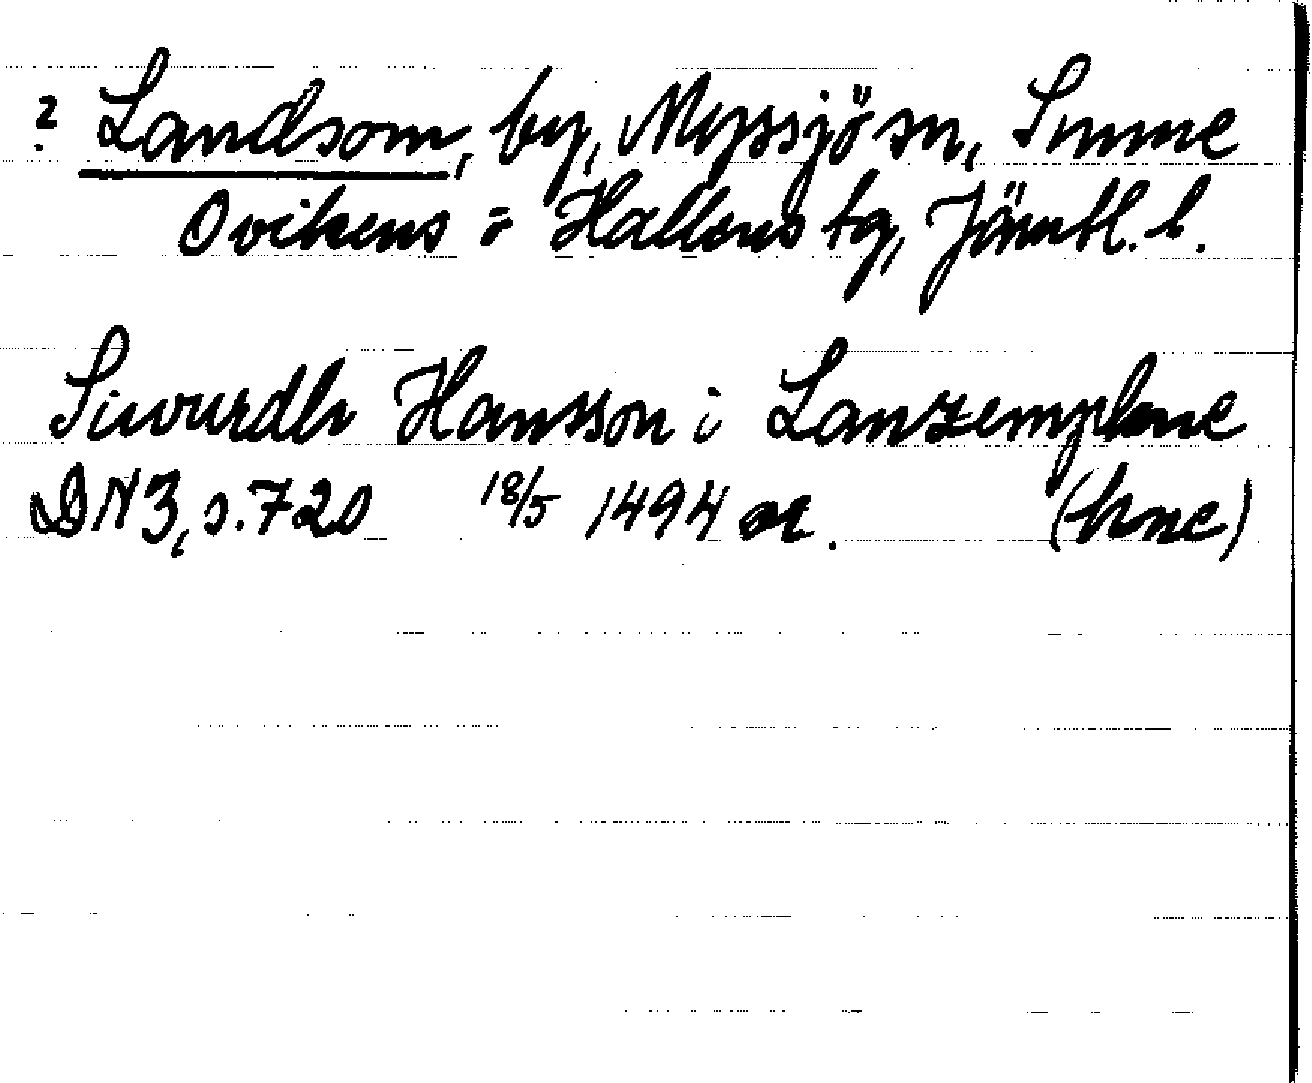 ? Landsom, by, Myssjö sn, Sunne
Ovikens o Hallens tg, Jämtl. l.
Siwurdh Hansson i Lanzemplene
DN 3, s. 720 18/5 1494 or. (hne)